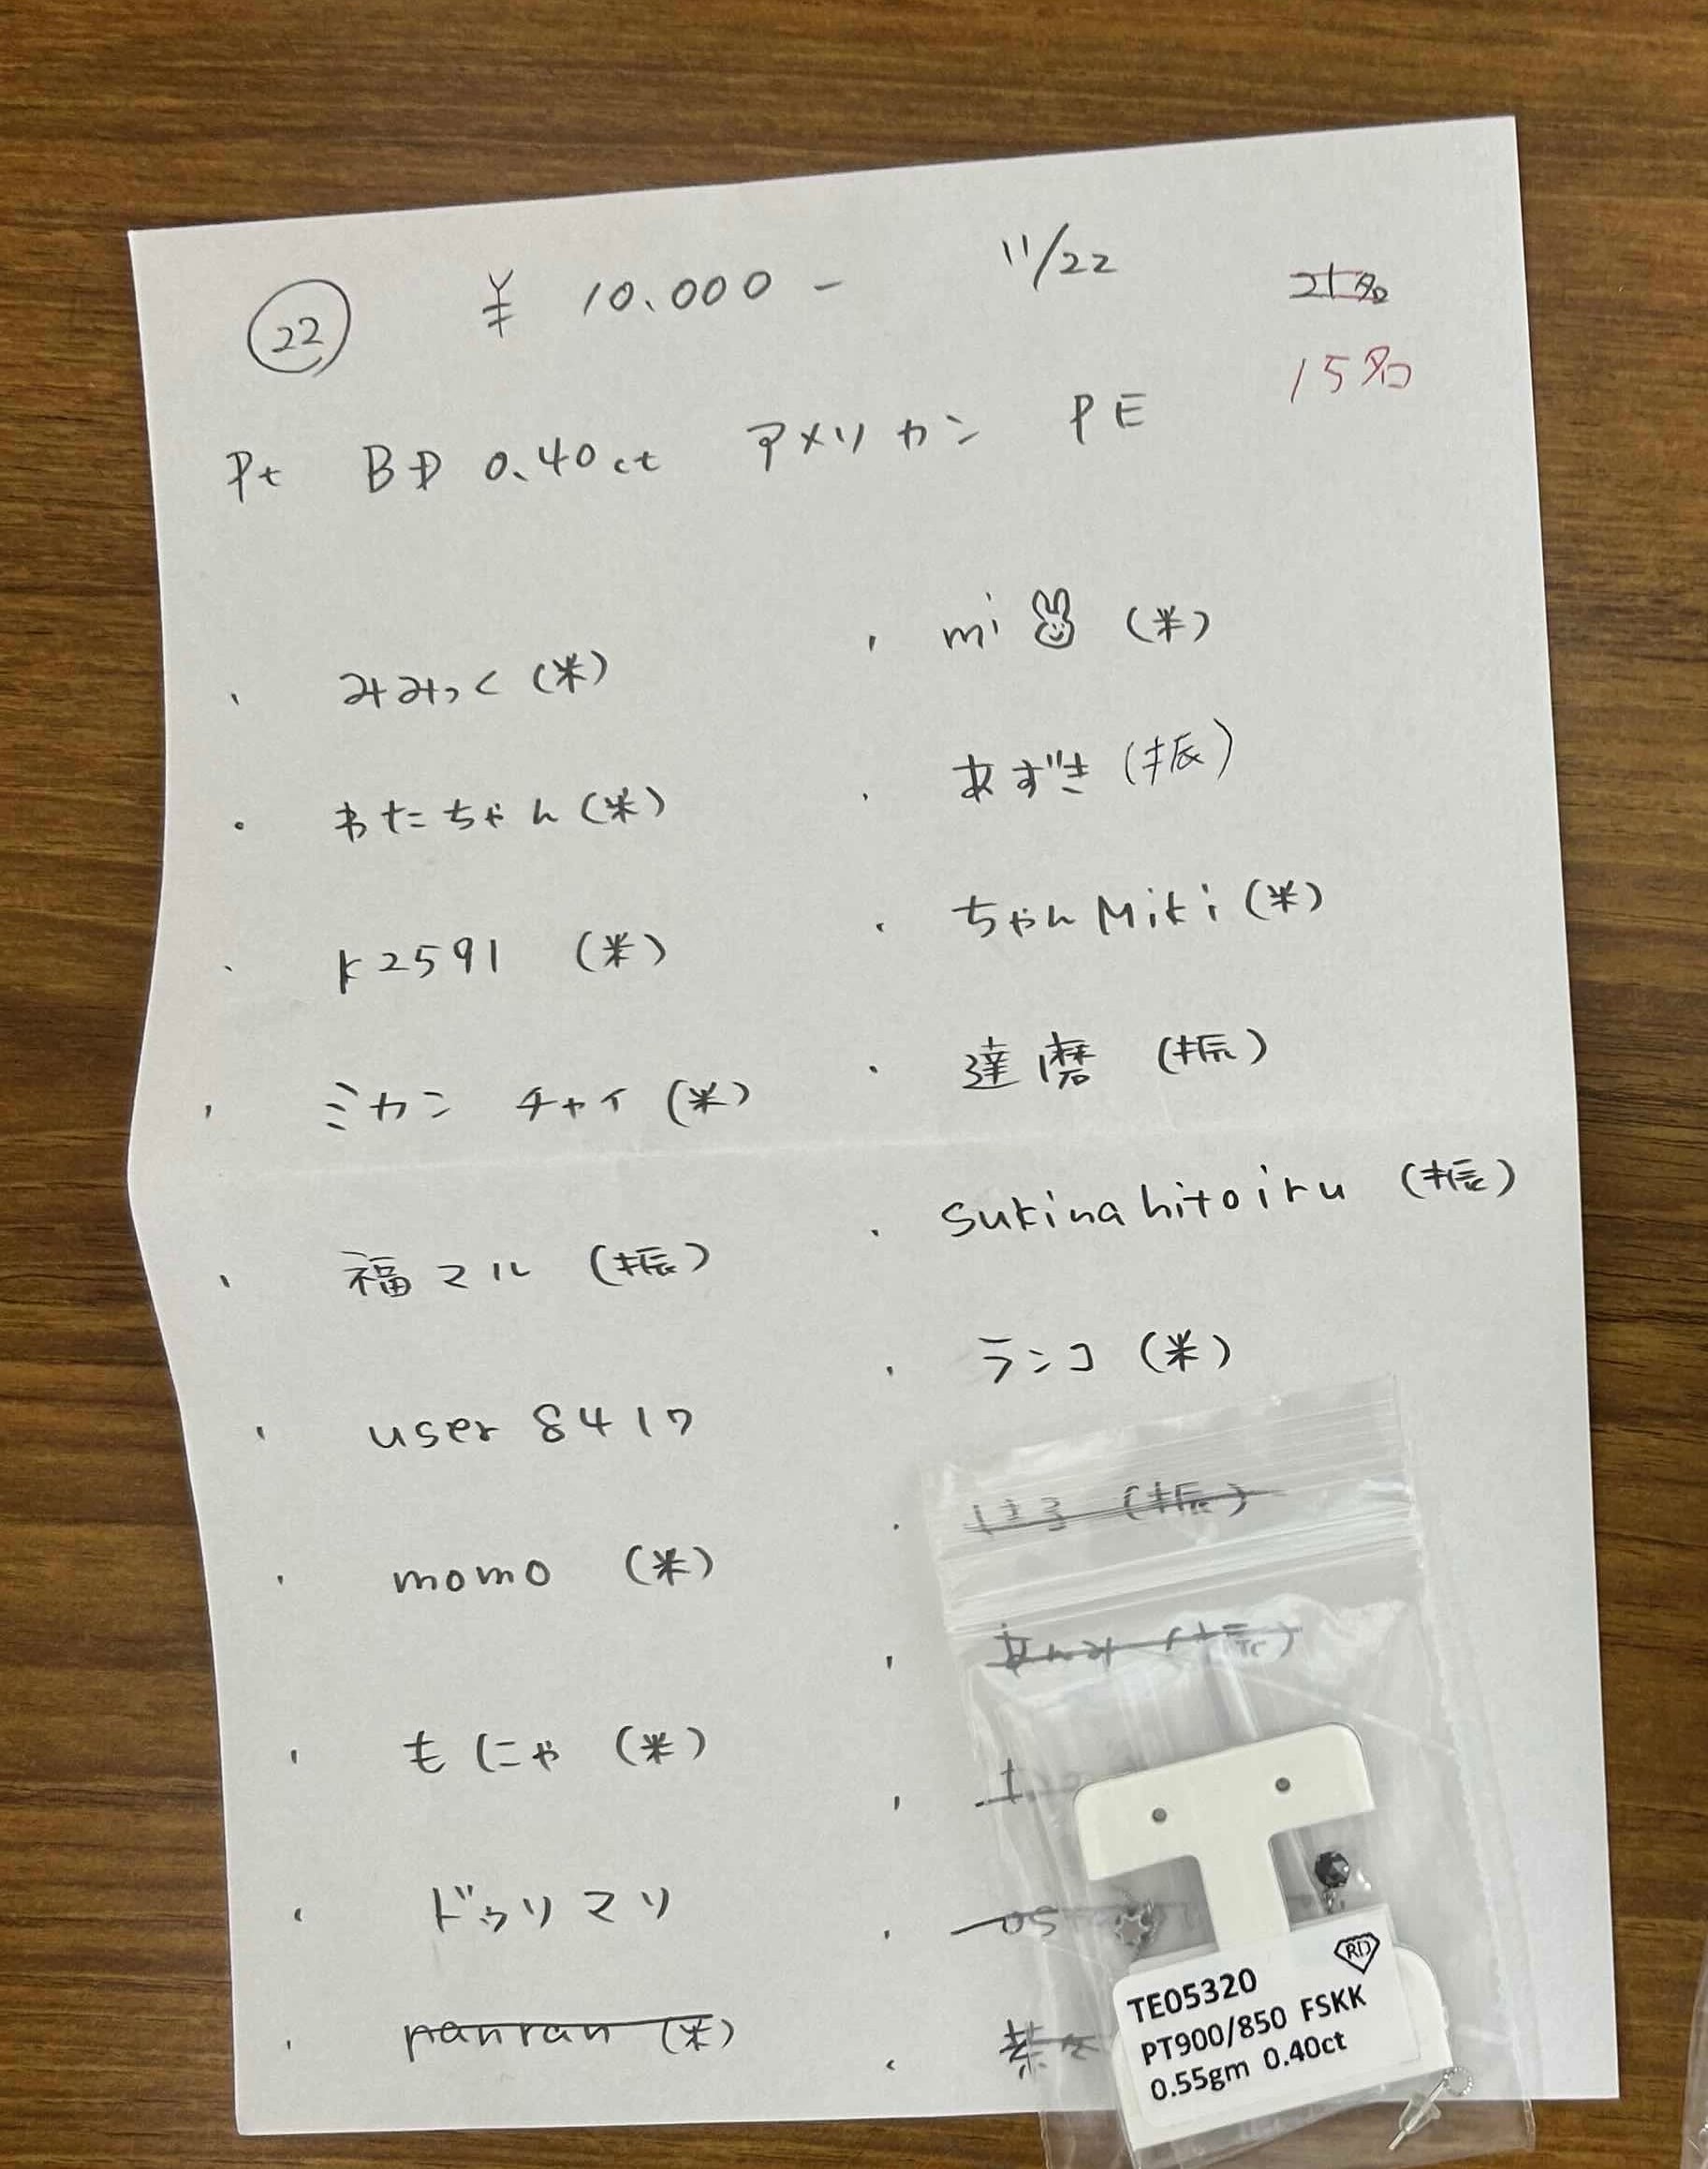 22 ¥ 10.000- 11/22 21名
15名
Pt BD 0.40ct アメリカン PE
・ みみっく (米)
・ わたちゃん (米)
・ K2591 (米)
・ ミカン チャイ (米)
・ 福マル (振)
・ user 8417
・ momo (米)
・ もにゃ (米)
・ ドゥリマリ
・ nanran (米)
・ mi (米)
・ あずき (振)
・ ちゃんMiki (米)
・ 達磨 (振)
・ sukinahitoiru (振)
・ ランコ (米)
・ はる (振)
・ あんみ (振)
TE05320 RD
PT900/850 FSKK
0.55gm 0.40ct